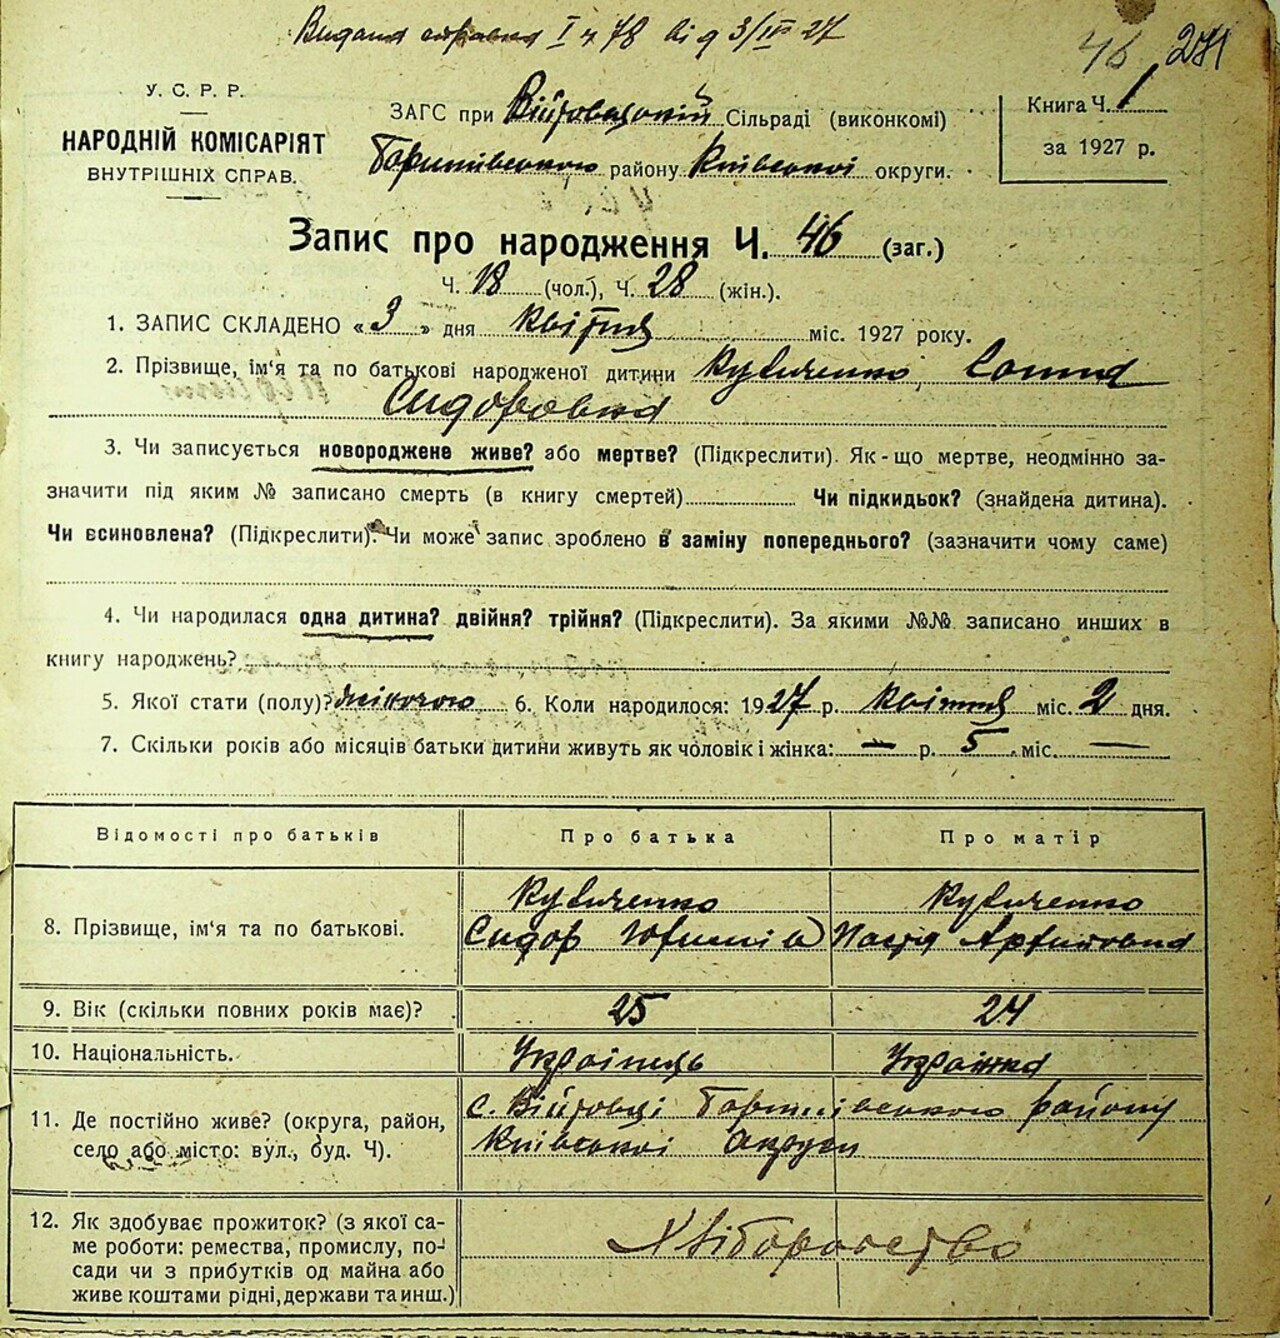 Видана справка I ч 78 від 3/IV 27
46 271
У. С. Р. Р.
НАРОДНІЙ КОМІСАРІЯТ
ВНУТРІШНІХ СПРАВ.
ЗАГС при Війтовецькій Сільраді (виконкомі)
району Київської округи.
Книга Ч. 1
за 1927 р.
Запис про народження Ч. 46 (заг.)
Ч. 18 (чол.), Ч. 28 (жін.).
1. ЗАПИС СКЛАДЕНО «3» дня квітня міс. 1927 року.
2. Прізвище, ім'я та по батькові народженої дитини
Сидоровна
3. Чи записується новороджене живе? або мертве? (Підкреслити). Як-що мертве, неодмінно за-
значити під яким № записано смерть (в книгу смертей) Чи підкидьок? (знайдена дитина).
Чи всиновлена? (Підкреслити). Чи може запис зроблено в заміну попереднього? (зазначити чому саме)
4. Чи народилася одна дитина? двійня? трійня? (Підкреслити). За якими №№ записано инших в
книгу народжень?
5. Якої стати (полу)? жіночою 6. Коли народилося: 1927 р. квітня міс. 2 дня.
7. Скільки років або місяців батьки дитини живуть як чоловік і жінка: — р. 5 міс. —
Відомості про батьків Про батька Про матір
8. Прізвище, ім'я та по батькові.
Сидор
9. Вік (скільки повних років має)? 25 24
10. Національність. Українець Українка
11. Де постійно живе? (округа, район,
село або місто: вул., буд. Ч).
с. Війтовці району
Київської Округи
12. Як здобуває прожиток? (з якої са-
ме роботи: ремества, промислу, по-
сади чи з прибутків од майна або
живе коштами рідні, держави та инш.)
Хліборобство